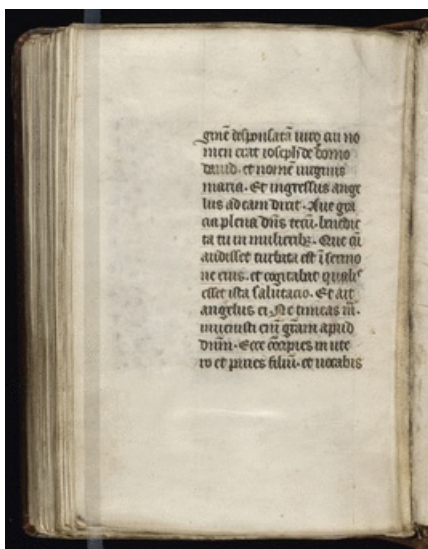 ginē desponsatā viro cui no
men erat ioseph de domo
dauid. et nomē uirginis
maria. Et ingressus ange
lus ad eam dixit. Aue gra
cia plena dn̄s tecū. benedic
ta tu in mulieribꝫ. Que cū
audisset turbata est ī sermo
ne eius. et cogitabat qualis
esset ista salutacio. Et ait
angelus ei. Ne timeas m̄.
inuenisti enī grām apud
dn̄m. Ecce cōcipies in ute
ro et paries filiū. et uocabis